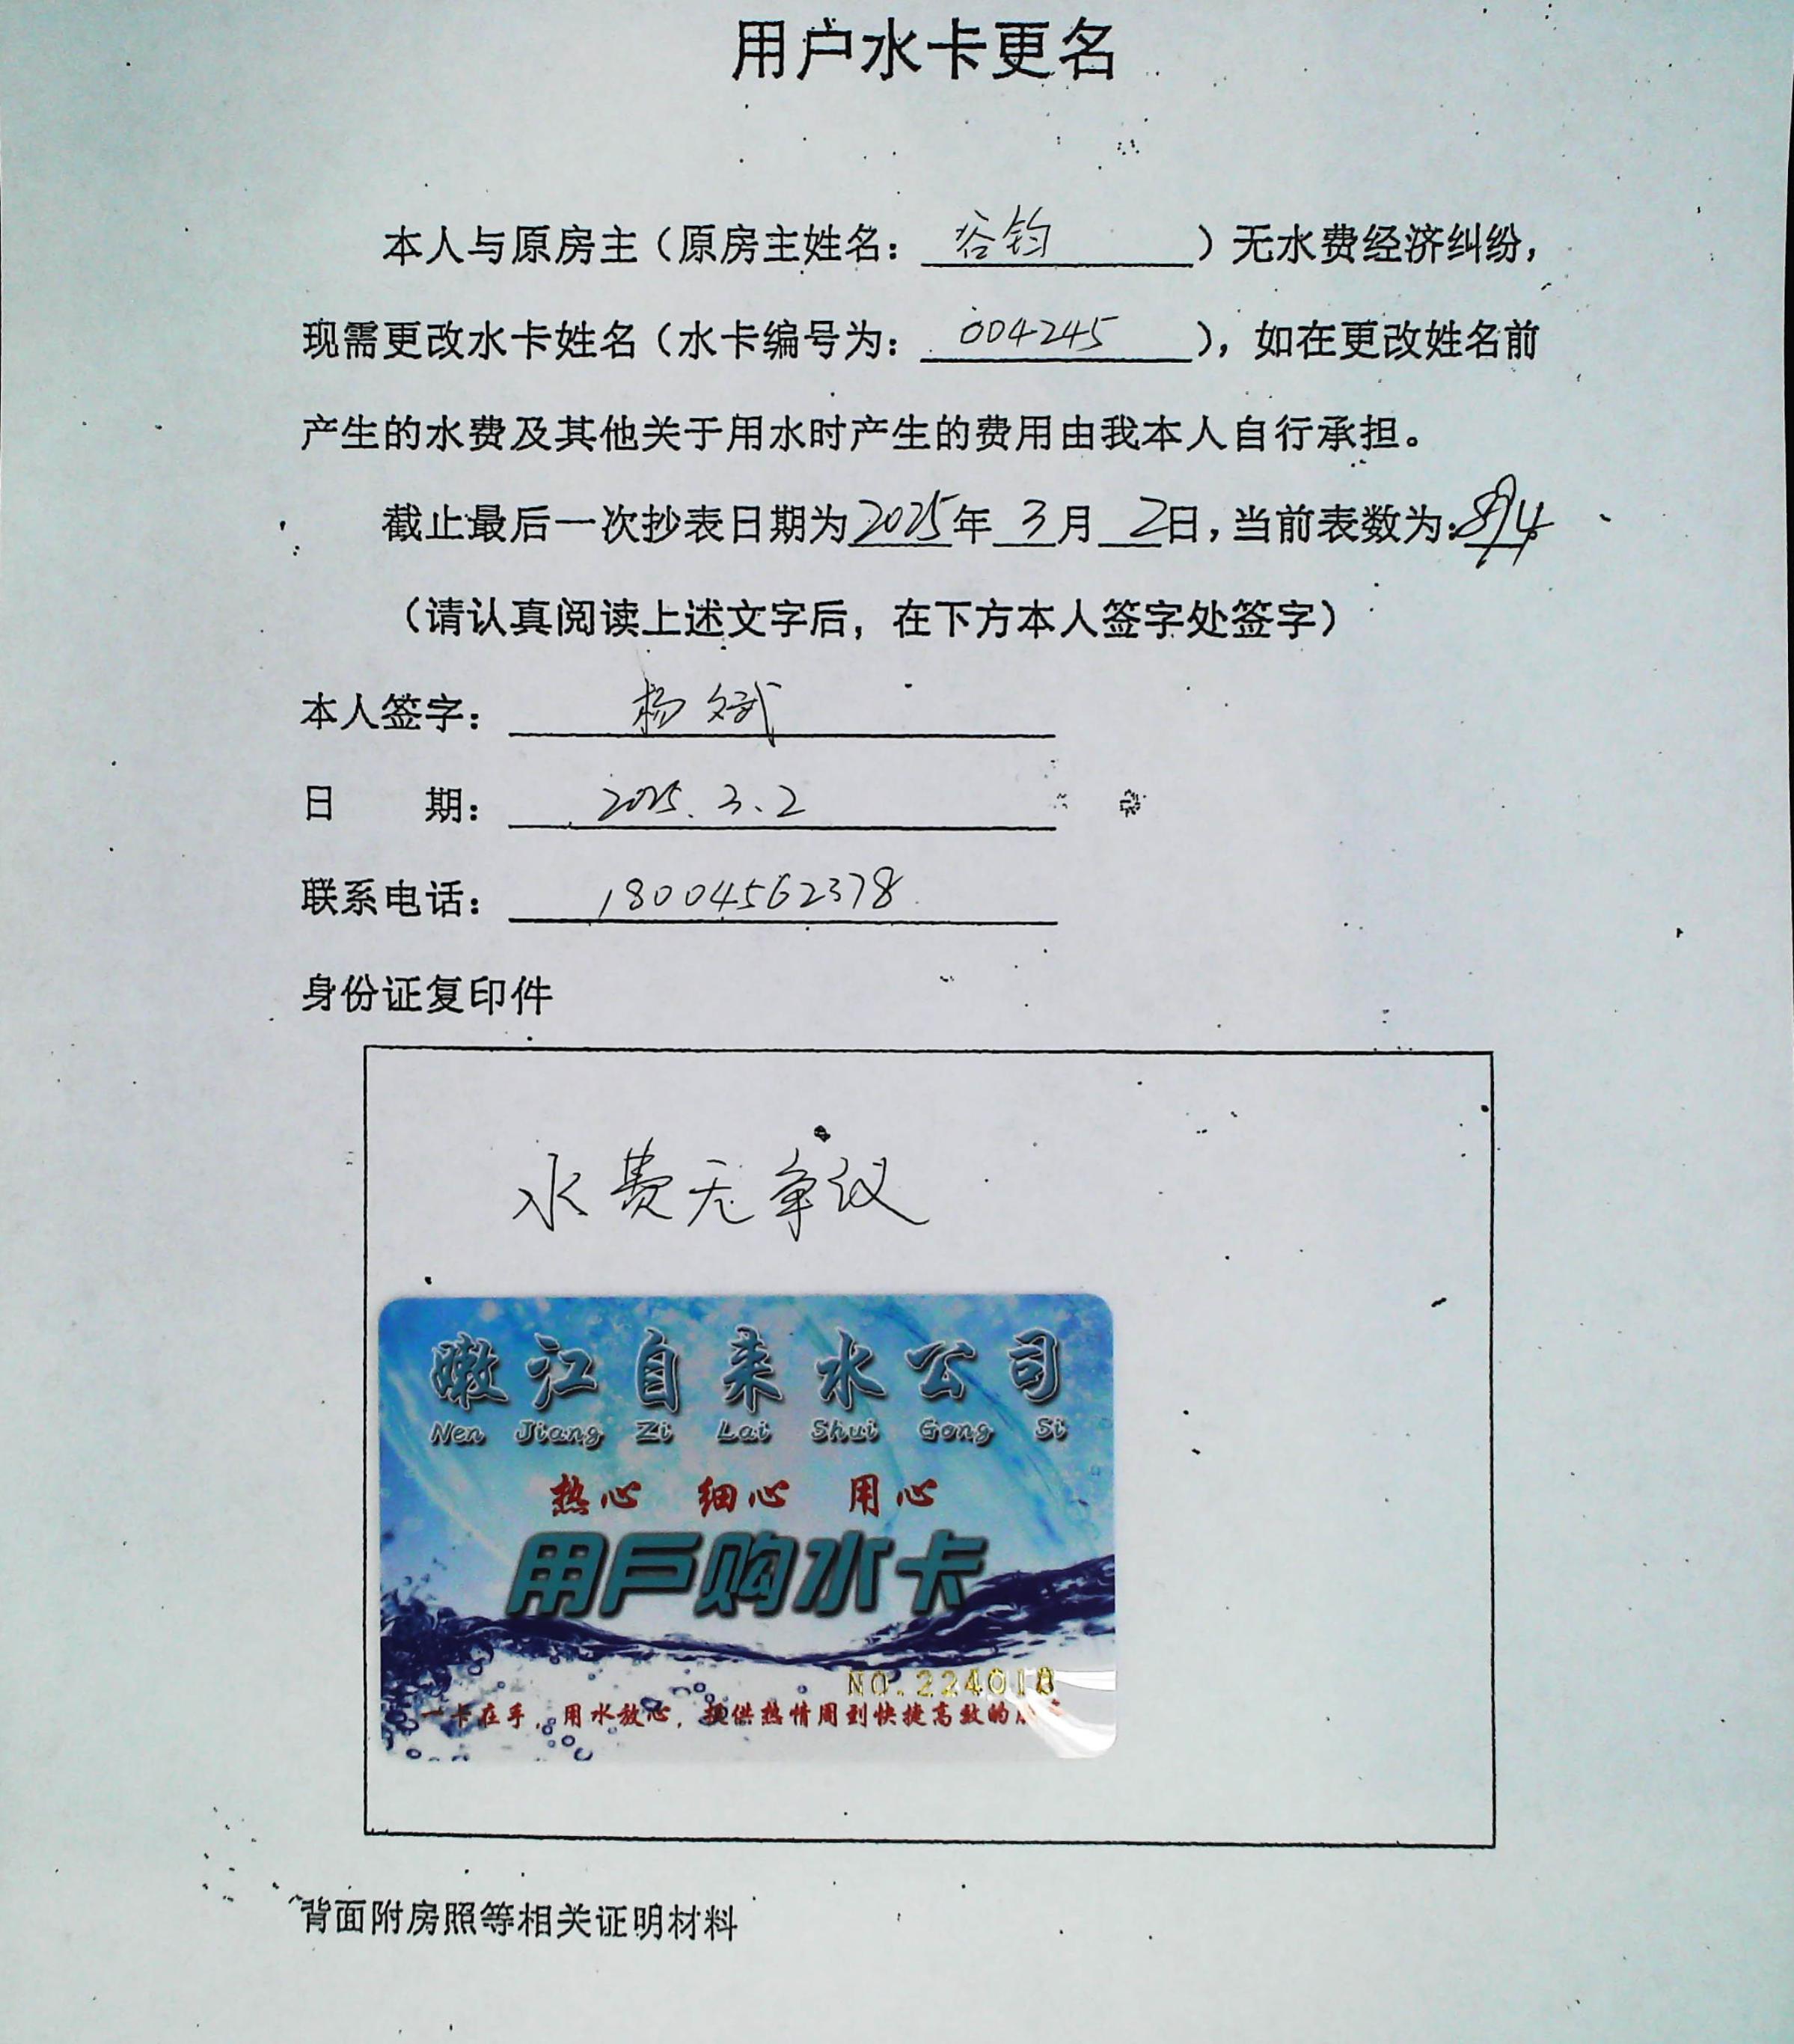 用户水卡更名
本人与原房主（原房主姓名：谷钧）无水费经济纠纷，
现需更改水卡姓名（水卡编号为：004245），如在更改姓名前
产生的水费及其他关于用水时产生的费用由我本人自行承担。
截止最后一次抄表日期为2025年3月2日，当前表数为：
（请认真阅读上述文字后，在下方本人签字处签字）
本人签字：杨斌
日 期：2025.3.2
联系电话：18004562378
身份证复印件
水费无争议
嫩江自来水公司
Nen Jiang Zi Lai Shui Gong Si
热心 细心 用心
用户购水卡
NO.224018
一卡在手，用水放心，提供热情周到快捷高效的
背面附房照等相关证明材料